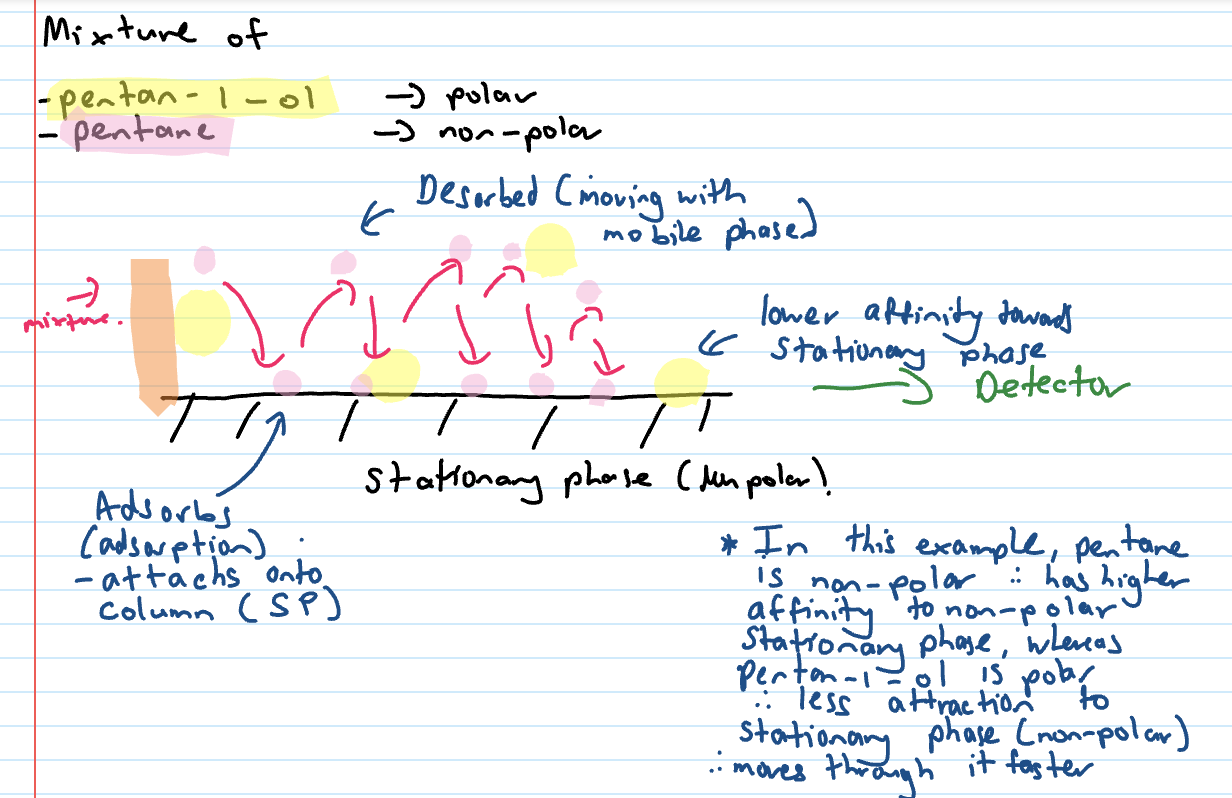 Mixture of
- pentan-1-ol → polar
- pentane → non-polar
Desorbed (moving with
mobile phase)
→
mixture.
lower affinity towards
stationary phase
→ Detector
Stationary phase (Non polar).
Adsorbs
(adsorption)
- attachs onto
column (SP)
* In this example, pentane
is non-polar ∴ has higher
affinity to non-polar
stationary phase, whereas
pentan-1-ol is polar
∴ less attraction to
stationary phase (non-polar)
∴ moves through it faster